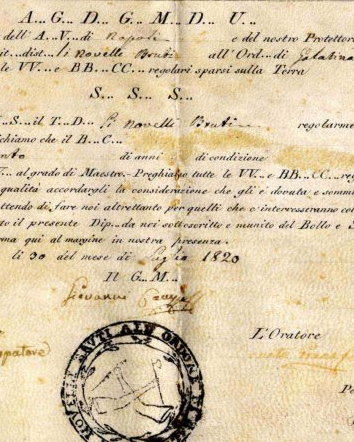 A.. G.. D.. G.. M.. D.. U..
dell' A.. V.. di Napoli e del nostro Protettore
it.. dist.. li Novelli Bruti all' Ord.. di Galatina
le VV.. e BB.. CC.. regolari sparsi sulla Terra
S.. S.. S..
S.. il T.. D.. li Novelli Bruti regolarme
chiamo che il B.. C..
di anni di condizione
al grado di Maestro. Preghiamo tutte le VV.. e BB.. CC.. reg
qualità accordargli la considerazione che gli è dovuta e somm
ttendo di fare noi altrettanto per quelli che c' interessranno co
to il presente Dip.. da noi sottoscritto e munito del Bollo e S
rma qui al margine in nostra presenza.
li 30 del mese di Luglio 1820
Il G.. M..
Giovanni
L'Oratore
NOVELLI BRUTI ALL ORDONE DI